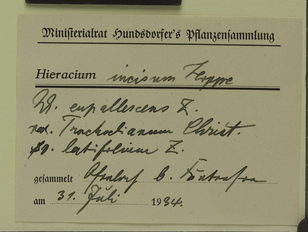 Ministerialrat Hundsdorfer's Pflanzensammlung
Hieracium incisum Hoppe
W. eupallescens Z.
var. Trachselianum Christ.
fo. latifolium Z.
gesammelt b.
am 31. Juli 1934.